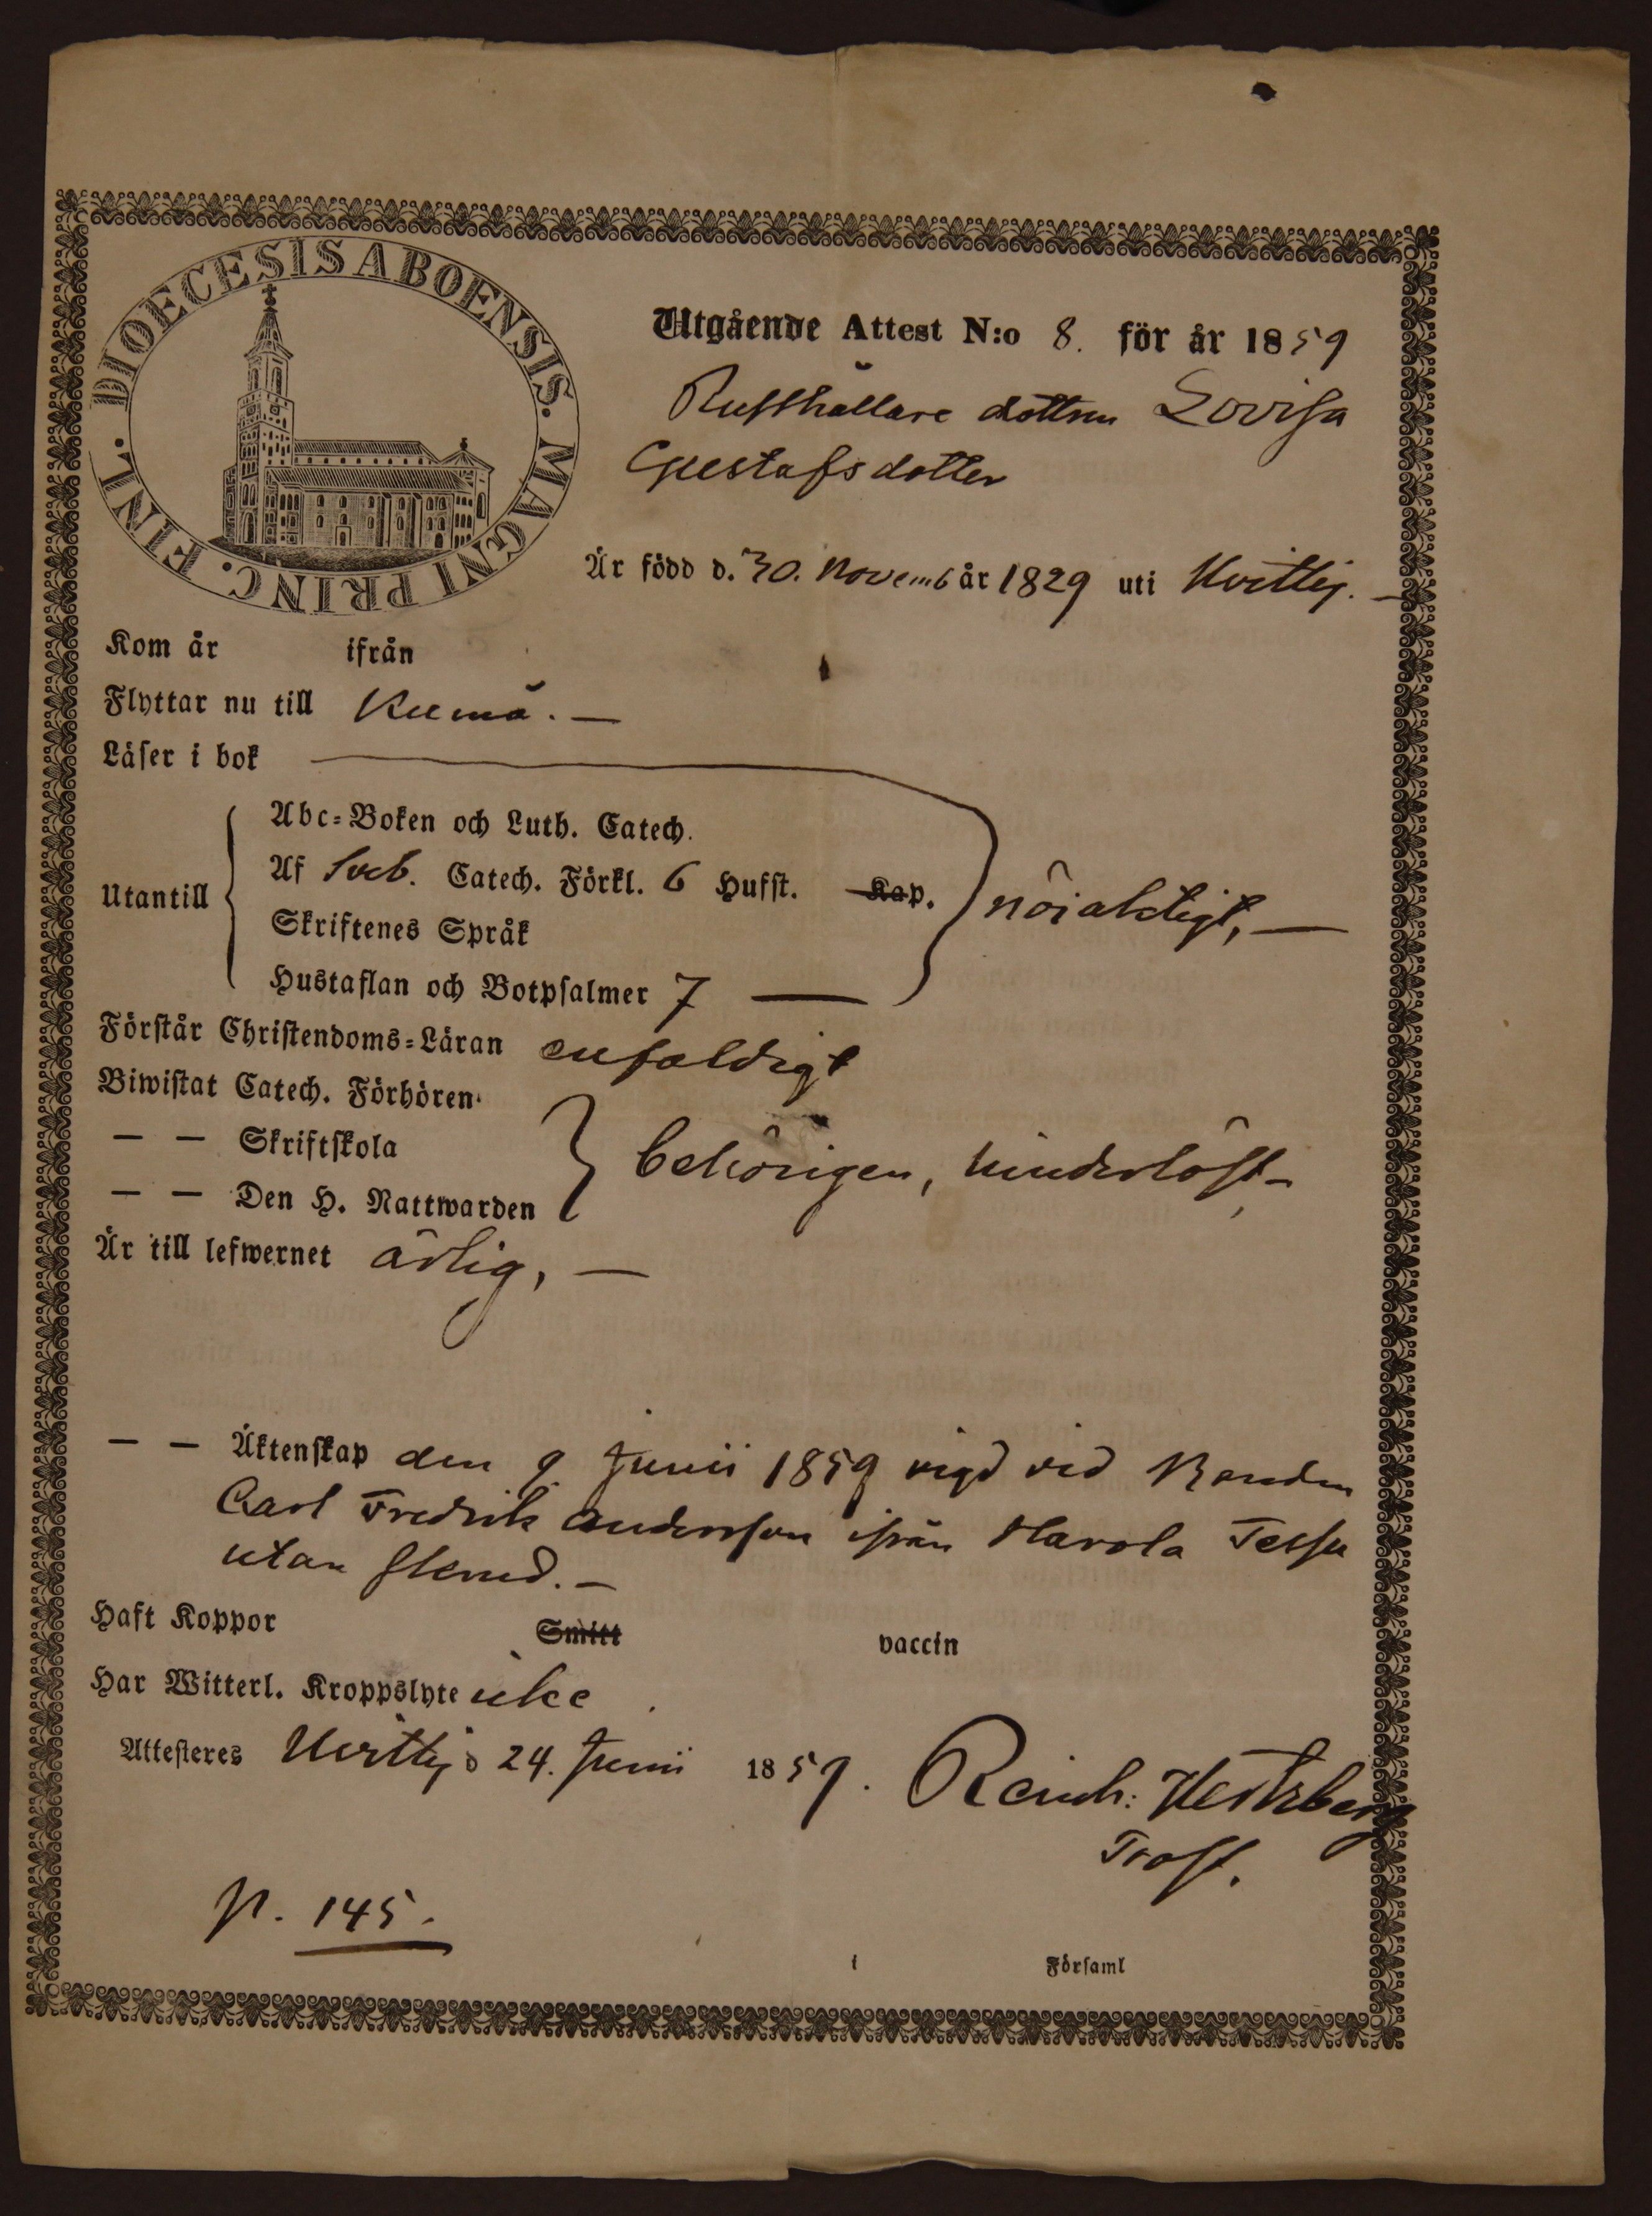 DIOECESIS ABOENSIS. MAGNI PRINC. FINL.
Utgående Attest N:o 8. för år 1859
Rusthållare dottren Lovisa
Gustafsdotter
Är född d. 30. Novemb år 1829 uti Hvittis. —
Kom år ifrån
Flyttar nu till Kumå. —
Läser i bok
Utantill
Abc-Boken och Luth. Catech.
Af Sveb. Catech. Förkl. 6 Hufst. Kap.
Skriftenes Språk
Hustaflan och Botpsalmer 7 —
nöjaktigt, —
Förstår Christendoms-Läran enfaldigt
Biwistat Catech. Förhören
— — Skriftskola
— — Den H. Nattwarden
behörigen, hinderlöst
Är till lefwernet ärlig, —
— — Äktenskap den 9 Junii 1859 vigd vid Bonden
Carl Fredrik Andersson ifrån Harola
utan
Haft Koppor Smitt vaccin
Har Witterl. Kroppslyte icke
Attesteres Hvittis d 24. Junii 1859. Reinh: Hertzberg
Prost.
p. 145.
i Församl